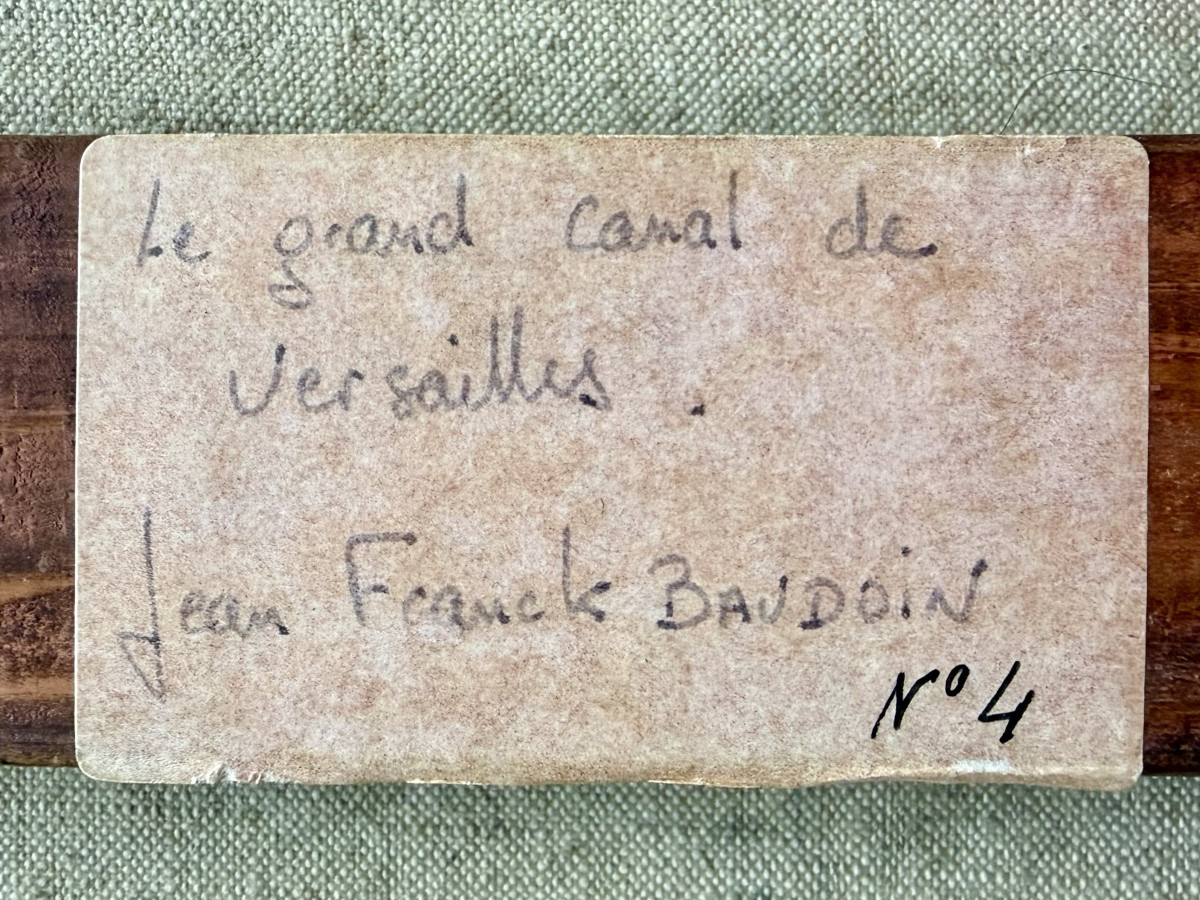 Le grand canal de
Versailles .
Jean Franck BAUDOIN
N° 4